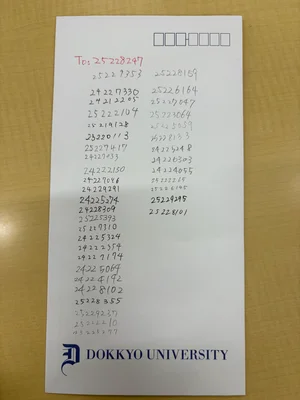 To: 25228247
25227353
24227330
24212205
25222104
25219128
25220113
25227417
24227033
24222150
25227086
24229291
24225274
24228309
25225393
25227310
24225324
24222354
24227174
24225069
24224192
24228102
25228355
25229237
25228169
25226164
25227047
25223064
24225248
24220303
24224055
25229295
25228101
DOKKYO UNIVERSITY